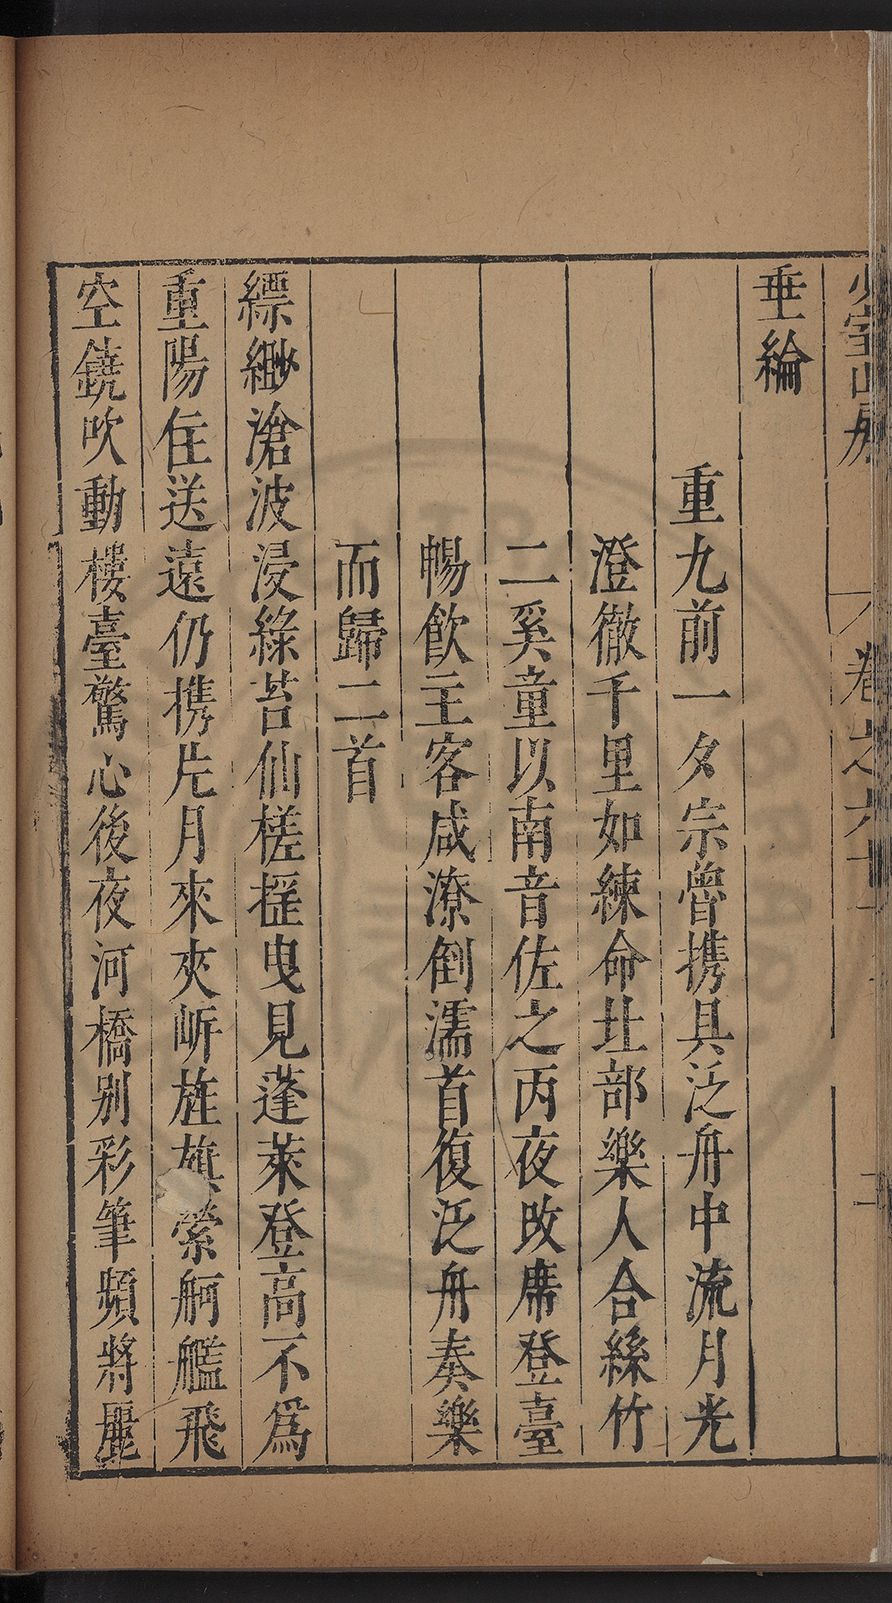 少室山房 卷之六十 二
垂綸
重九前一夕宗魯携具泛舟中流月光
澄徹千里如練命㘳部樂人合絲竹
二奚童以南音佐之丙夜改席登臺
暢飲主客咸潦倒濡首復泛舟奏樂
而歸二首
縹緲滄波浸綠苔仙槎摇曳見蓬萊登高不爲
重陽住送遠仍携片月來夾岍旌旗縈舸艦飛
空鐃吹動樓臺驚心後夜河橋别彩筆頻將麗